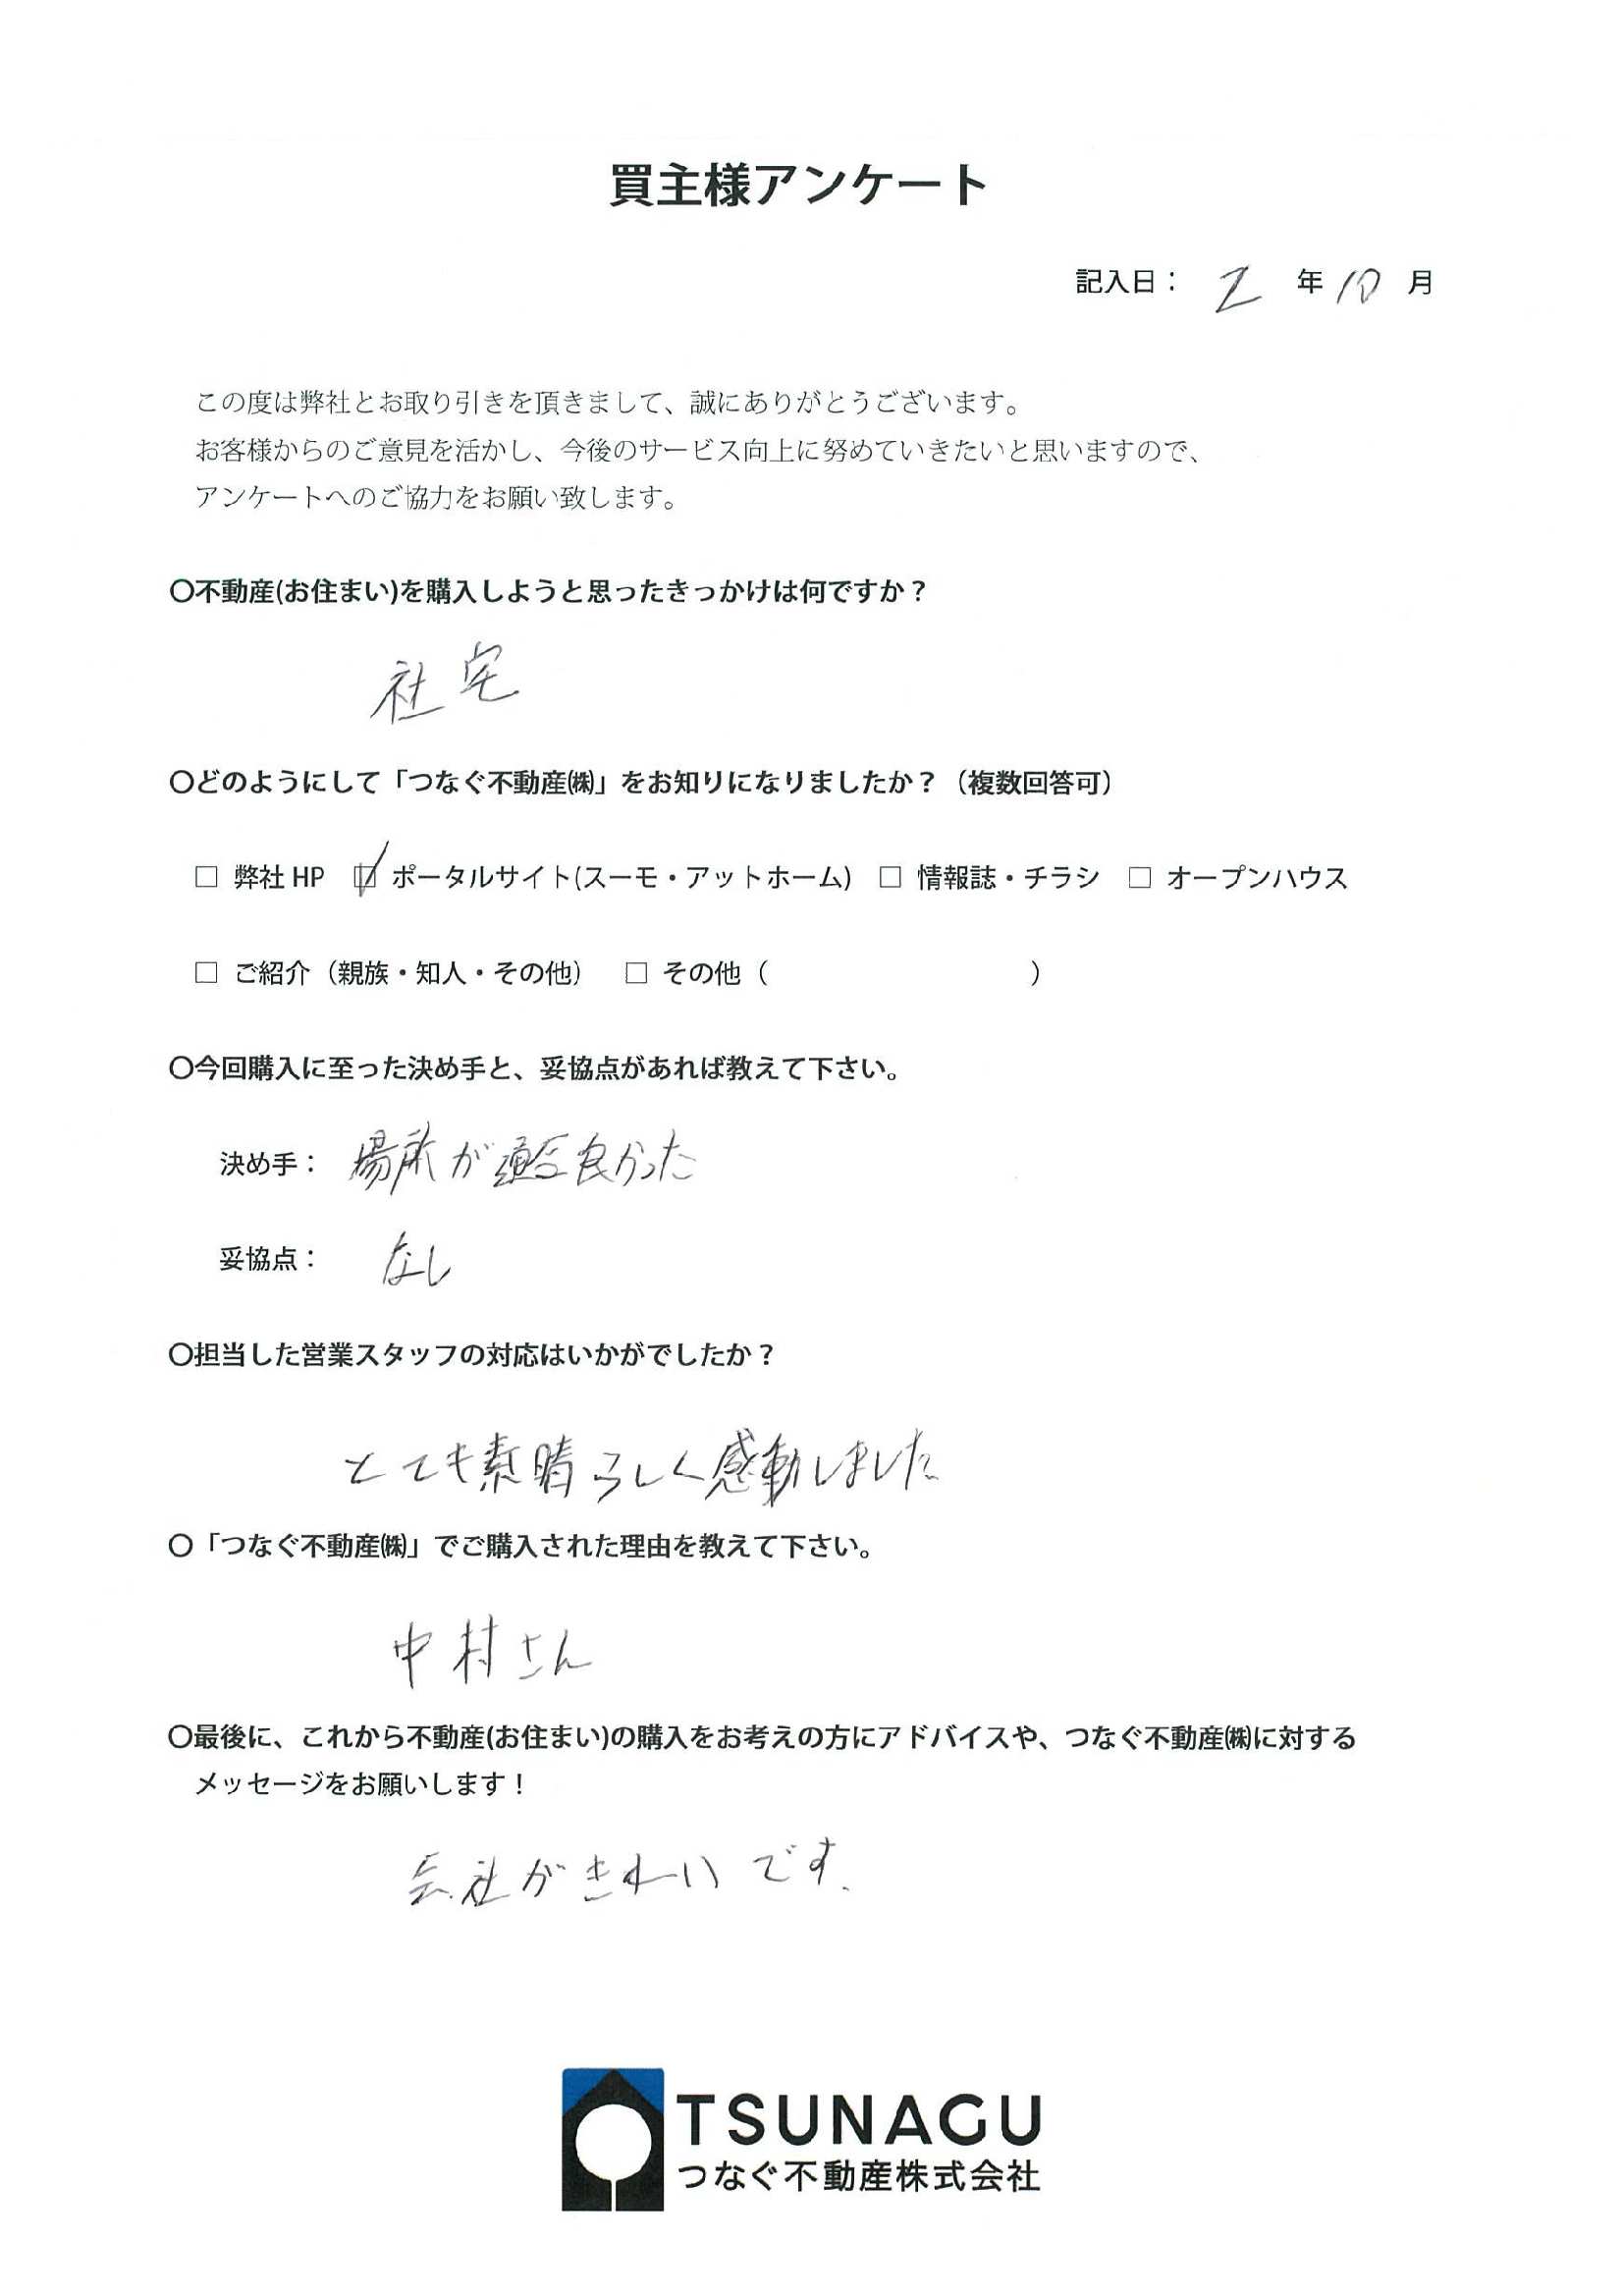 買主様アンケート
記入日： 2 年 10 月
この度は弊社とお取り引きを頂きまして、誠にありがとうございます。
お客様からのご意見を活かし、今後のサービス向上に努めていきたいと思いますので、
アンケートへのご協力をお願い致します。
〇不動産(お住まい)を購入しようと思ったきっかけは何ですか？
社宅
〇どのようにして「つなぐ不動産㈱」をお知りになりましたか？（複数回答可）
□ 弊社 HP ☑ ポータルサイト(スーモ・アットホーム) □ 情報誌・チラシ □ オープンハウス
□ ご紹介（親族・知人・その他） □ その他（ ）
〇今回購入に至った決め手と、妥協点があれば教えて下さい。
決め手： 場所が良かった
妥協点： なし
〇担当した営業スタッフの対応はいかがでしたか？
とても素晴らしく感動しました
〇「つなぐ不動産㈱」でご購入された理由を教えて下さい。
中村さん
〇最後に、これから不動産(お住まい)の購入をお考えの方にアドバイスや、つなぐ不動産㈱に対する
メッセージをお願いします！
会社がきれいです.
TSUNAGU
つなぐ不動産株式会社